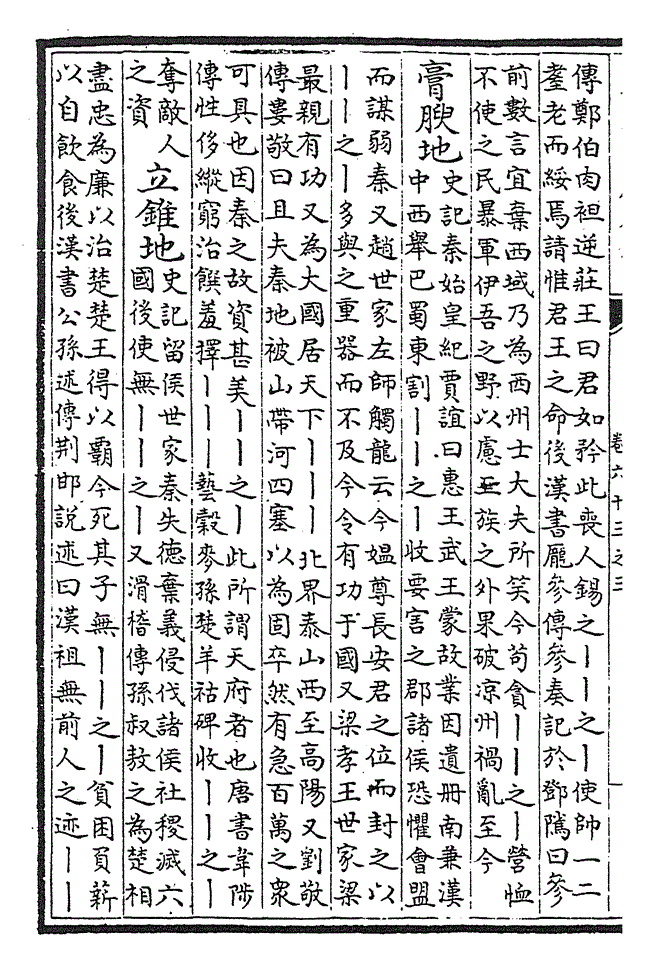 傳鄭伯肉袒逆莊王曰君如矜此喪人錫之丨丨之丨使帥一二
耋老而綏焉請惟君王之命後漢書龐參傳參奏記於鄧隲曰參
前數言宜棄西域乃為西州士大夫所笑今苟貪丨丨之丨營恤
不使之民暴軍伊吾之野以慮三族之外果破凉州禍亂至今
膏腴地
史記秦始皇紀賈誼曰惠王武王蒙故業因遺冊南兼漢
中西舉巴蜀東割丨丨之丨收要害之郡諸侯恐懼會盟
而謀弱秦又趙世家左師觸龍云今媼尊長安君之位而封之以
丨丨之丨多與之重器而不及今令有功于國又梁孝王世家梁
最親有功又為大國居天下丨丨丨北界泰山西至高陽又劉敬
傳婁敬曰且夫秦地被山帶河四塞以為固卒然有急百萬之衆
可具也因秦之故資甚美丨丨之丨此所謂天府者也唐書韋陟
傳性侈縱窮治饌羞擇丨丨丨藝穀麥孫楚羊祜碑收丨丨之丨
奪敵人
之資
立錐地
史記留侯世家秦失德棄義侵伐諸侯社稷滅六
國後使無丨丨之丨又滑稽傳孫叔敖之為楚相
盡忠為廉以治楚楚王得以霸今死其子無丨丨之丨貧困負薪
以自飲食後漢書公孫述傳荆邯説述曰漢祖無前人之迹丨丨